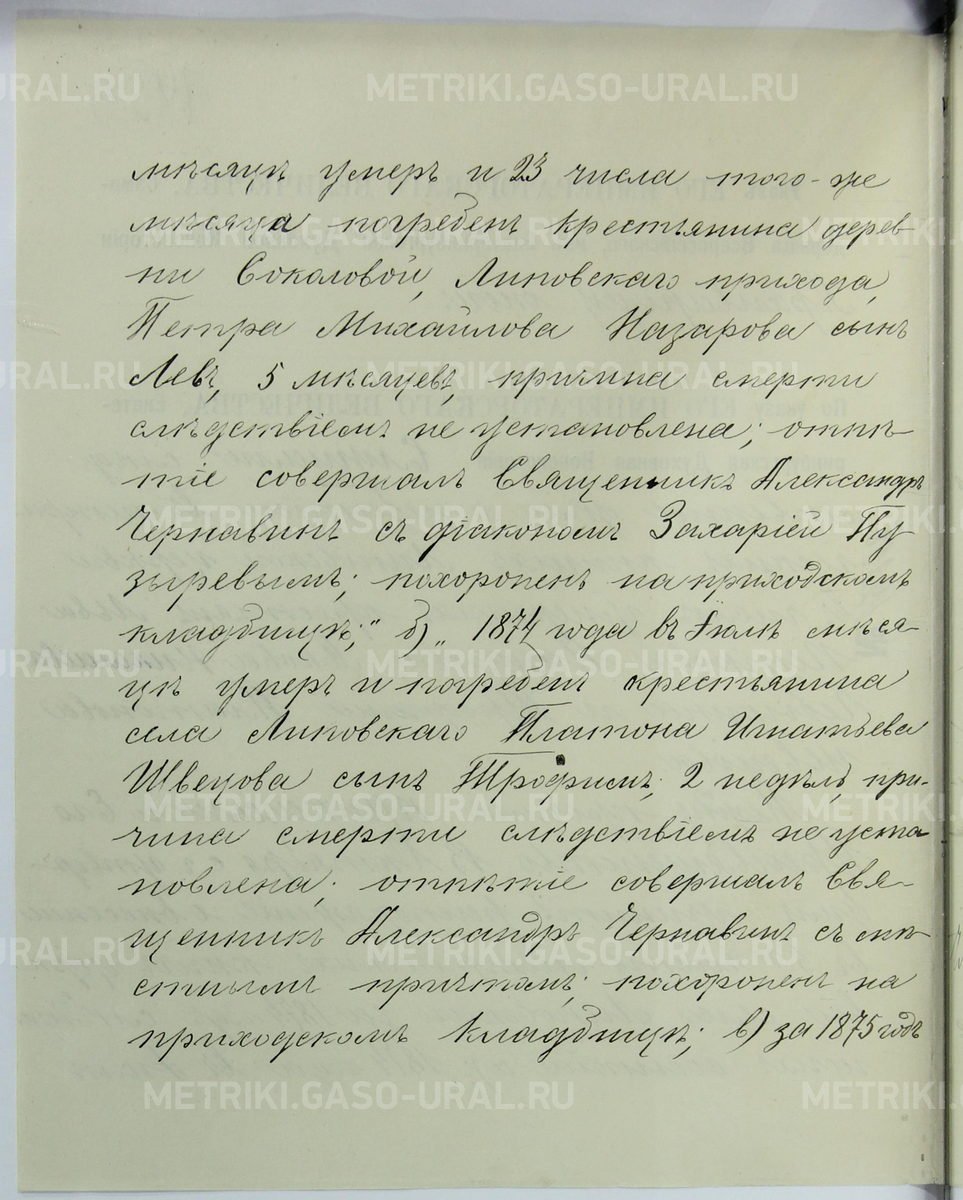 мѣсяцѣ умеръ и 23 числа того-же
мѣсяца погребенъ крестьянина дерев-
ни Соколовой, Липовскаго прихода,
Петра Михайлова Назарова сынъ
Левъ, 5 мѣсяцевъ, причина смерти
слѣдствіемъ не установлена; отпѣ-
тіе совершалъ Священникъ Александръ
Чернавинъ съ діакономъ Захаріей Пу-
зыревымъ; похороненъ на приходскомъ
кладбищѣ;" б) „1874 года въ Іюлѣ мѣся-
цѣ умеръ и погребенъ крестьянина
села Липовскаго Платона Игнатьева
Швецова сынъ Трофимъ, 2 недѣль, при-
чина смерти слѣдствіемъ не уста
новлена; отпѣтіе совершалъ Свя-
щенникъ Александръ Чернавинъ съ мѣ-
стнымъ причтомъ; похороненъ на
приходскомъ кладбищѣ; в) за 1875 годъ
METRIKI.GASO-URAL.RU